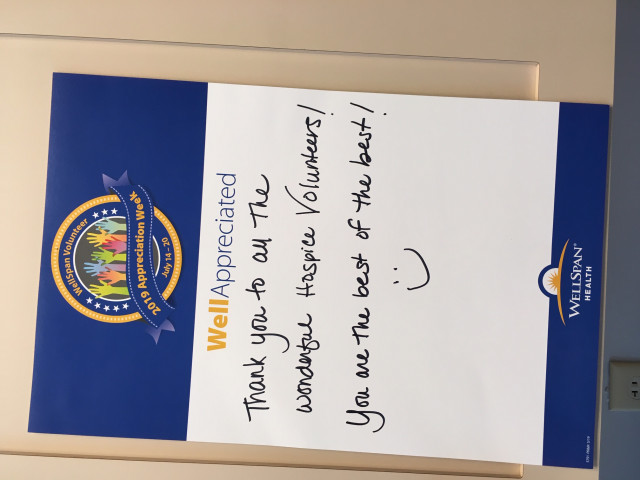 WellSpan Volunteer
2019 Appreciation Week
July 14 - 20
WellAppreciated
Thank you to all the
wonderful Hospice Volunteers!
You are the best of the best!
WELLSPAN®
HEALTH